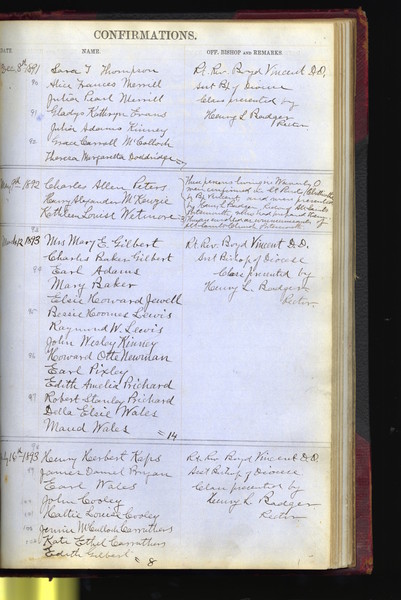 CONFIRMATIONS.
DATE NAME. OFF. BISHOP and REMARKS.
Dec 8th 1891 Sara T Thompson Rt. Rev. Boyd Vincent D.D.
90 Alice Frances Merrill Asst Bp of Diocese
Julia Pearl Merrill Class presented by
91 Gladys Kathryn Evans Henry L Badger
Julia Adams Kinney Rector
92 Grace Carroll McCulloch
Theresa Margaretta Doddridge
1892 Charles Allen Peters These persons living in Waverly O
Henry Alexander McKenzie were confirmed in
Kathleen Louise Wetmore by Bp Vincent and were presented
by Henry L Badger Rector of All Saints
Portsmouth, who had prepared them.
They are enrolled as communicants of
All Saints Church Portsmouth
1893 Mrs Mary E. Gilbert Rt Rev. Boyd Vincent D.D.
Charles Baker Gilbert Asst Bishop of Diocese
94 Earl Adams Class presented by
Mary Baker Henry L. Badger
Elsie Howard Jewett Rector.
95 Bessie Lewis
Raymond W. Lewis
John Wesley Kinney
96 Howard Otte Newman
Earl Pixley
Edith Amelia Prichard
97 Robert Stanley Prichard
Della Elsie Wales
Maud Wales = 14
98
16th 1893 Henry Herbert Kaps Rt. Rev. Boyd Vincent D.D.
99 James Daniel Bryan Asst Bishop of Diocese
Earl Wales Class presented by
John Cooley Henry L. Badger
Hattie Louise Cooley Rector
Jennie McCulloch Carrathers
Kate Ethel Carrathers
Edith Gilbert = 8